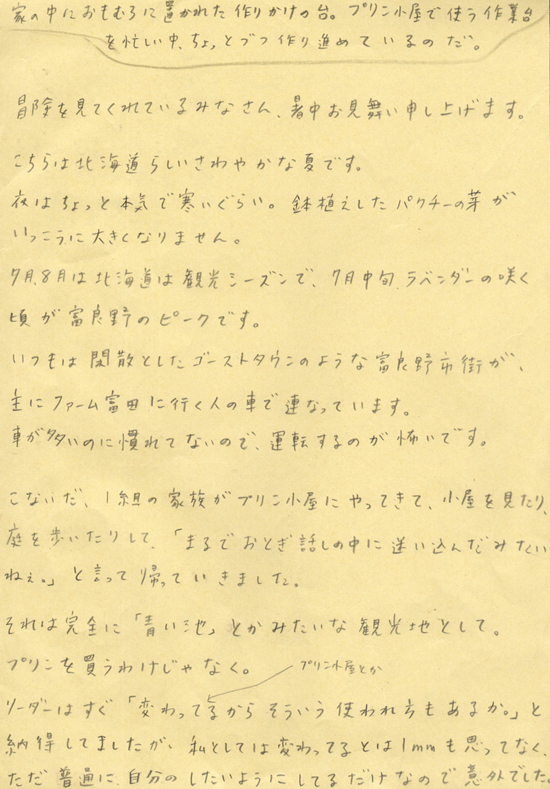 家の中におもむろに置かれた作りかけの台。プリン小屋で使う作業台
を忙しい中、ちょっとづつ作り進めているのだ。
冒険を見てくれているみなさん、暑中お見舞い申し上げます。
こちらは北海道らしいさわやかな夏です。
夜はちょっと本気で寒いぐらい。鉢植えしたパクチーの芽が
いっこうに大きくなりません。
7月、8月は北海道は観光シーズンで、7月中旬、ラベンダーの咲く
頃が富良野のピークです。
いつもは閑散としたゴーストタウンのような富良野市街が、
主にファーム富田に行く人の車で連なっています。
車が多いのに慣れてないので、運転するのが怖いです。
こないだ、1組の家族がプリン小屋にやってきて、小屋を見たり、
庭を歩いたりして、「まるでおとぎ話しの中に迷い込んだみたい
ねぇ。」と言って帰っていきました。
それは完全に「青い池」とかみたいな観光地として。
プリンを買うわけじゃなく。
プリン小屋とか
リーダーはすぐ「変わってるからそういう使われ方もあるか。」と
納得してましたが、私としては変わってるとは1mmも思ってなく、
ただ普通に、自分のしたいようにしてるだけなので意外でした。